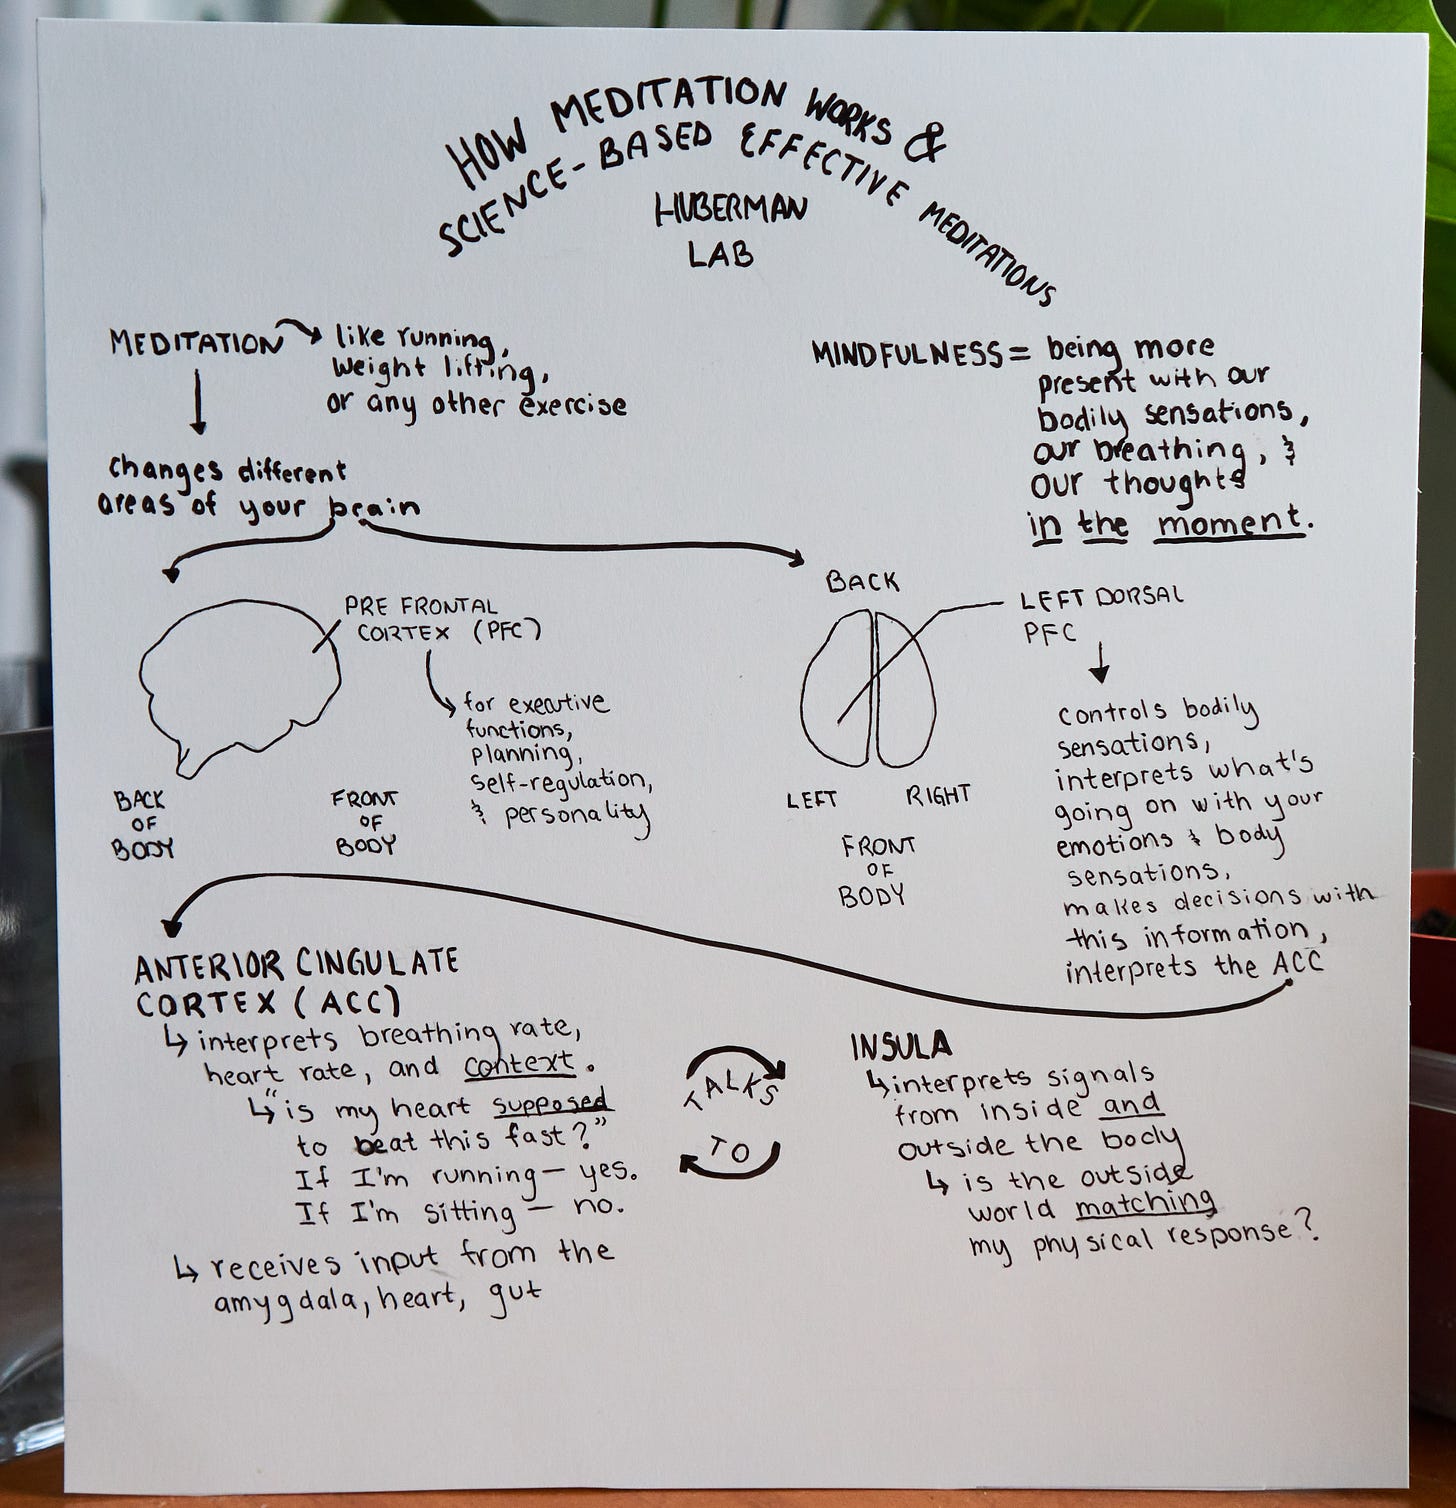 HOW MEDITATION WORKS &
SCIENCE-BASED EFFECTIVE MEDITATIONS
HUBERMAN
LAB
MEDITATION → like running,
weight lifting,
or any other exercise
↓
changes different
areas of your brain
MINDFULNESS = being more
present with our
bodily sensations,
our breathing, &
our thoughts
in the moment.
PRE FRONTAL
CORTEX (PFC)
for executive
functions,
planning,
self-regulation,
& personality
BACK
OF
BODY
FRONT
OF
BODY
BACK
LEFT
RIGHT
FRONT
OF
BODY
LEFT DORSAL
PFC
↓
controls bodily
sensations,
interprets what's
going on with your
emotions & body
sensations,
makes decisions with
this information,
interprets the ACC
ANTERIOR CINGULATE
CORTEX (ACC)
↳ interprets breathing rate,
heart rate, and context.
↳ "is my heart supposed
to beat this fast?"
If I'm running — yes.
If I'm sitting — no.
↳ receives input from the
amygdala, heart, gut
TALKS
TO
INSULA
↳ interprets signals
from inside and
outside the body
↳ is the outside
world matching
my physical response?